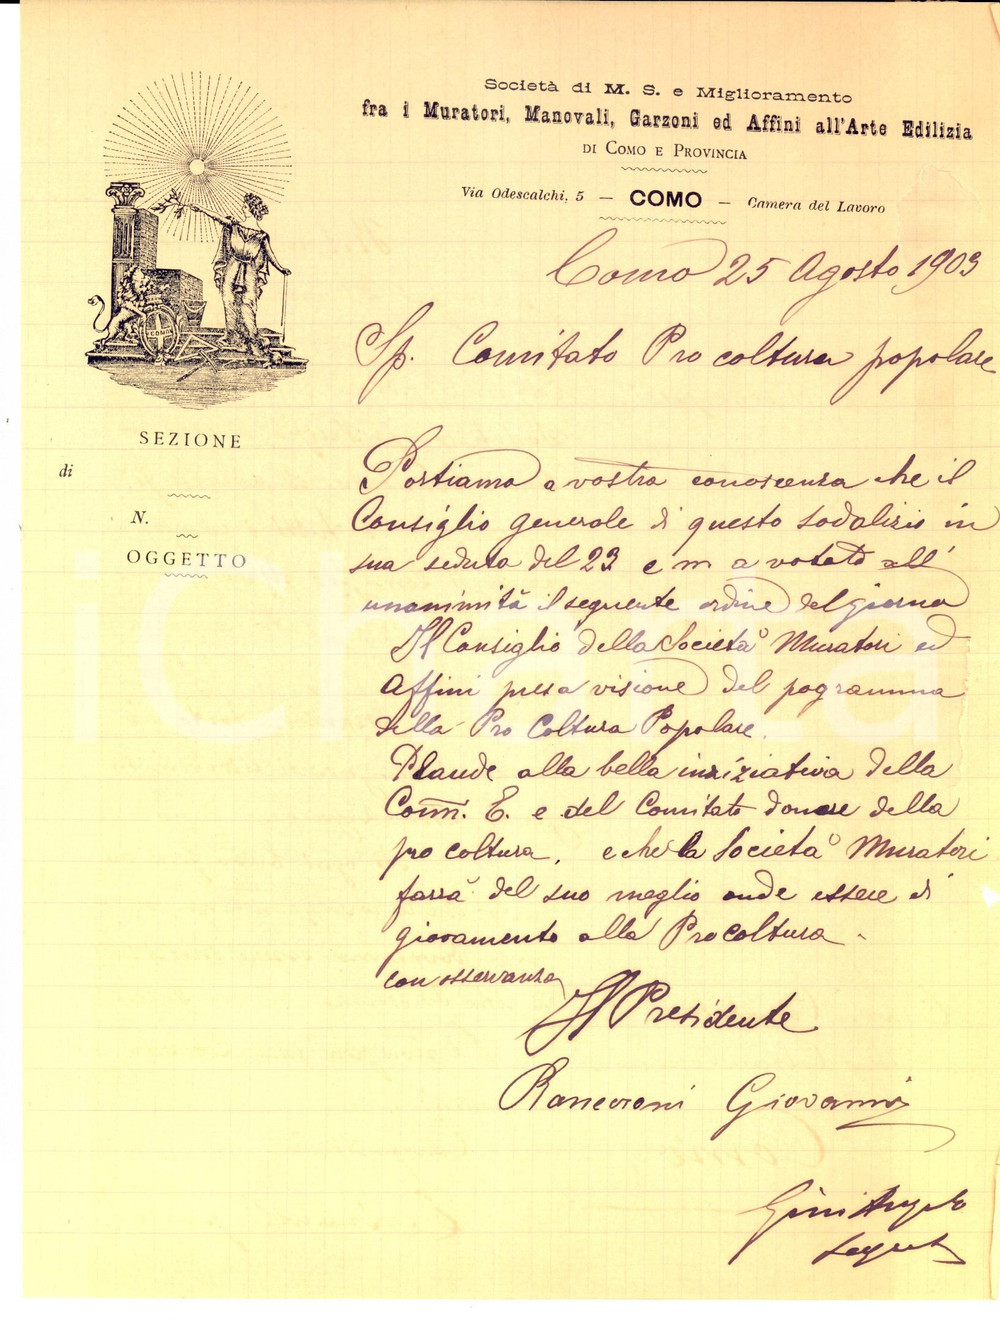 Società di M. S. e Miglioramento
fra i Muratori, Manovali, Garzoni ed Affini all'Arte Edilizia
DI COMO E PROVINCIA
Via Odescalchi, 5 — COMO — Camera del Lavoro
Como 25 Agosto 1903
Sp. Comitato Pro coltura popolare
COMO
SEZIONE
di
N.
OGGETTO
Portiamo a vostra conoscenza che il
Consiglio generale di questo sodalizio in
sua seduta del 23 c m a votato all'
unanimità il seguente ordine del giorno
Il Consiglio della Società Muratori ed
Affini presa visione del pogramma
della Pro Coltura Popolare.
Plaude alla bella inziziativa della
Com. E. e del Comitato donore della
pro coltura, e che la Società Muratori
farrà del suo meglio onde essere di
giovamento alla Pro Coltura -
con osservanza
Il Presidente
Giovanni
Gini Angelo
iChina